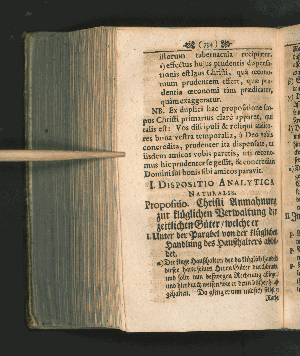 (734)
istorum tabernacula reciperet.
2) effectus hujus prudentis dispensa-
tionis est laus Christi, quâ œcono-
mum prudentem effert, quæ pru-
dentia œconomi tàm prædicatur,
quàm exaggeratur.
NB. Ex duplici hac propositione sco-
pus Christi primarius clarè apparet, qui
talis est: Vos discipuli & reliqui audito-
res bona vestra temporalia, à Deo vobis
concredita, prudenter ita dispensate, ut
iisdem amicos vobis paretis, uti œcono-
mus hic prudenter se gessit, & concreditis
Domini sui bonis sibi amicos paravit.
I. DISPOSITIO ANALYTICA
NATURALIS.
Propositio. Christi Anmahnung
zur klüglichen Verwaltung der
zeitlichen Güter / welche er
I. Unter der Parabel von der klüglichen
Handlung des Haußhalters abbil-
det.